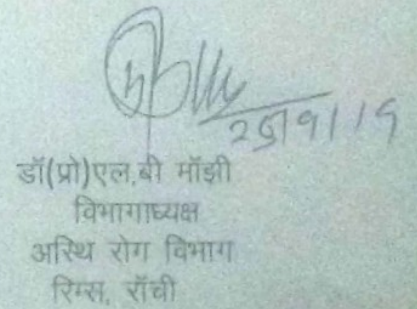 25/9/19
डॉ(प्रो)एल.बी मॉझी
विभागाध्यक्ष
अस्थि रोग विभाग
रिम्स, रॉची